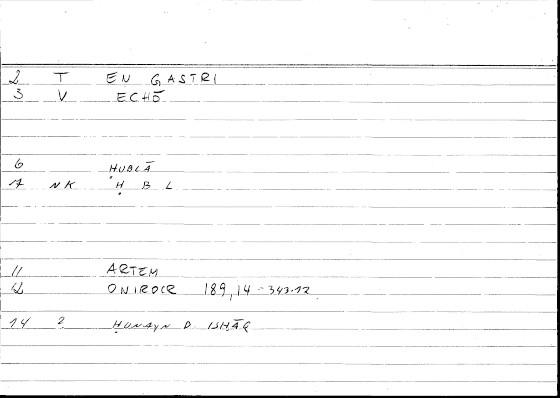 2 T EN GASTRI
3 V ECHŌ
6 ḤUBLĀ
7 NK Ḥ B L
11 ARTEM
12 ONIROCR 189,14 - 343.12
14 2 ḤUNAYN B ISḤĀQ